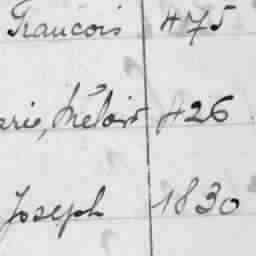 Francois 475
arie, Méloir 426
Joseph 1830